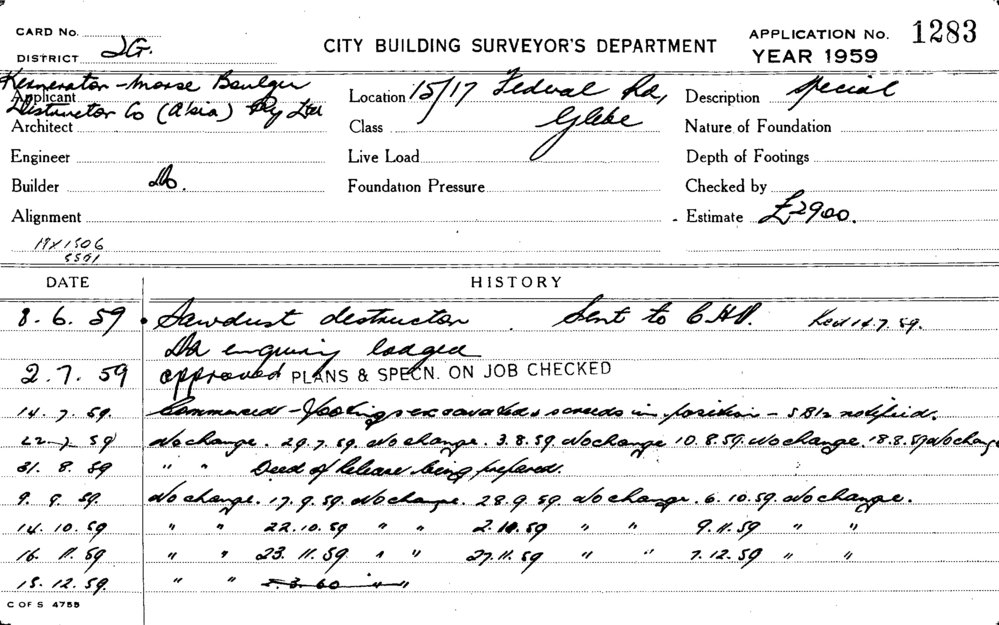 CARD No.
DISTRICT JG.
CITY BUILDING SURVEYOR'S DEPARTMENT
APPLICATION No. 1283
YEAR 1959
Kernerator-Morse Boulger
Applicant
Destructor Co (A'sia) Pty Ltd
Location 15/17 Federal Rd,
Glebe
Description Special
Architect
Class
Nature of Foundation
Engineer
Live Load
Depth of Footings
Builder Do.
Foundation Pressure
Checked by
Alignment
Estimate £2900.
DATE HISTORY
8. 6. 59 Sawdust destructor Sent to C.H.O. Recd 14.7.59.
enquiry lodged
2. 7. 59 approved PLANS & SPECN. ON JOB CHECKED
14. 7. 59. Commenced - Footings excavated & screeds in position - notified.
22-7. 59 No change. 29.7.59. No change. 3.8.59 No change 10.8.59. No change. 18.8.59 No change
31. 8. 59 " " Deed of Release being prepared.
9. 9. 59. No change. 17.9.59. No change. 28.9.59. No change. 6.10.59. No change.
14. 10. 59 " " 22.10.59 " " 2.10.59 " " 9.11.59 " "
16. 11. 59 " " 23. 11. 59 " " 27.11.59 " " 7.12.59 " "
15. 12. 59. " "
C OF S 4755